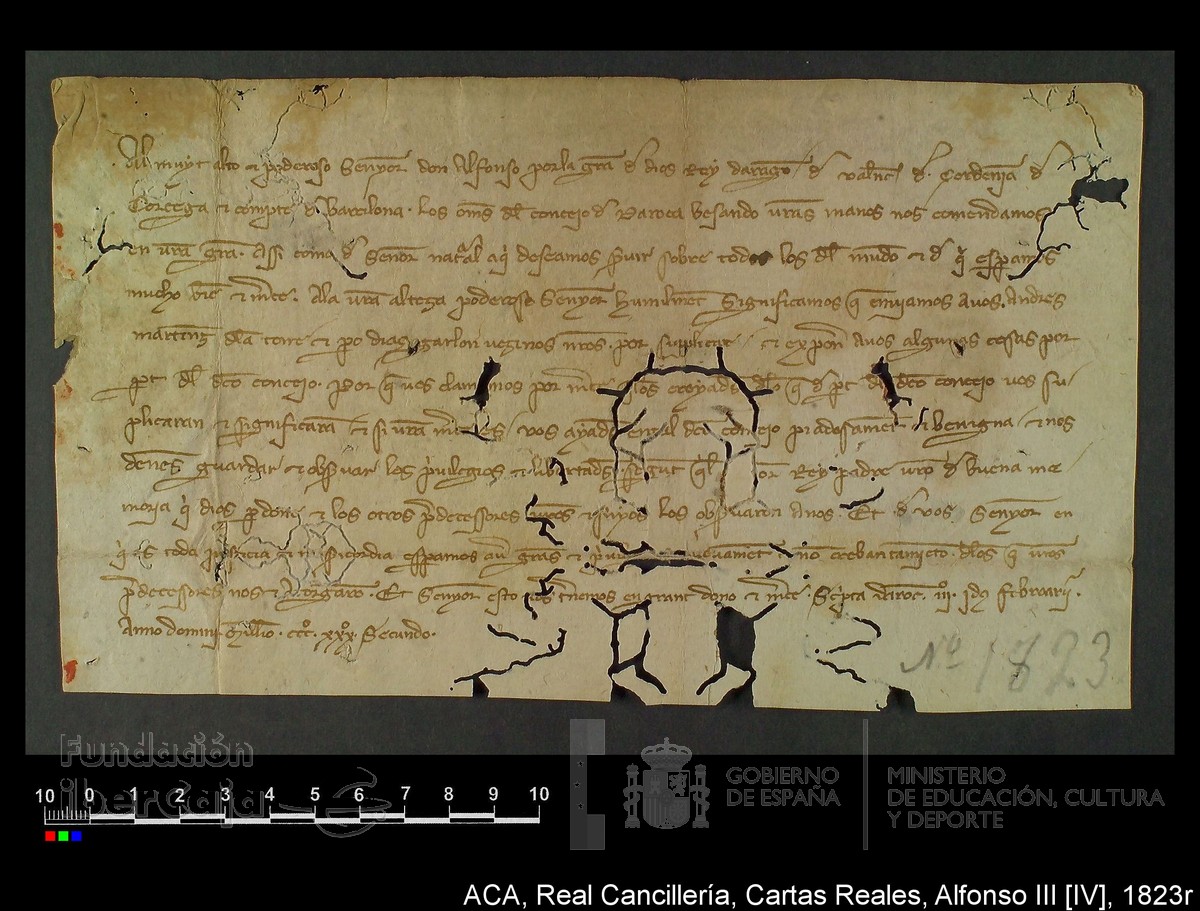 Al muyt alto et poderoso Senyor don Alfonso por la gra de dios Rey daragon de Valenc de Cerdenya de
Corcega et compte de Barcelona. Los oms del concejo de Daroca besando vras manos nos comendamos
en vra gra. Assi como de Senor natural a qi deseamos seruir sobre todos los del mundo et de qi esperamos
mucho bien et merce. Ala vra alteza poderoso Senyor humilment Significamos que enuiamos auos Andres
martinez dela torre et po diaz garlon vezinos nros. por suplicar et exponer auos algunas cosas por
part del dito concejo. Por que uos clamamos por merce los creyades dello que de part del dito concejo uos su
plicaran et significaran et si vra merce es vos ayades en tal dito concejo piadosament et benigna et nos
denes guardar et obseruar los priuilegios et libertades segunt Rey padre vro de buena me
moria qi dios perdone et los otros predecessores vros et suyos los obseruaron anos. Et de vos Senyor en
qi es toda justicia et misericordia esperamos auer gras et nouament et no crebantamiento delos que vros
predecessores nos atorgaron. Et Senyor esto uos tenremos en grant dono et merce. Scripta daroc. iii. idus februarii.
Anno domini Millo. ccc. xxx. Secundo.
Nº 1823
Fundación
ibercaja
10 0 1 2 3 4 5 6 7 8 9 10
GOBIERNO
DE ESPAÑA
MINISTERIO
DE EDUCACIÓN, CULTURA
Y DEPORTE
ACA, Real Cancillería, Cartas Reales, Alfonso III [IV], 1823r